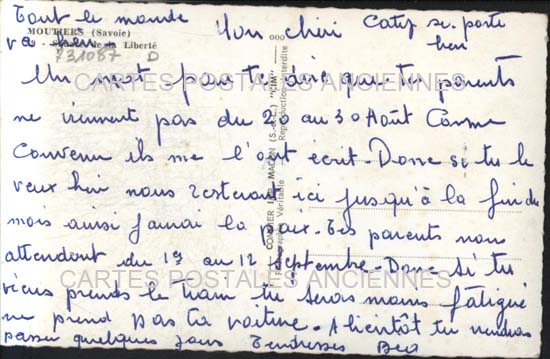 Tout le monde
va bien
Mon chéri
Caty se porte
bien
MOUTIERS (Savoie)
de la Liberté
731087 D
Un mot pour te dire que tes parents
ne viennent pas du 20 au 30 Août Comme
Convenu ils me l'ont écrit. Donc si tu le
veux bien nous resterons ici jusqu'à la fin du
mois ainsi j'aurai la paix. Tes parents nous
attendent du au 12 septembre. Donc si tu
viens prends le train tu seras moins fatigué
ne prend pas ta voiture. A bientôt tu viendras
passer quelques jours Tendresses
COMBIER IMP. MACON (S.-&-L.) "CIM"
Photographie Véritable
Reproduction interdite
CARTES POSTALES ANCIENNES
CARTES POSTALES ANCIENNES